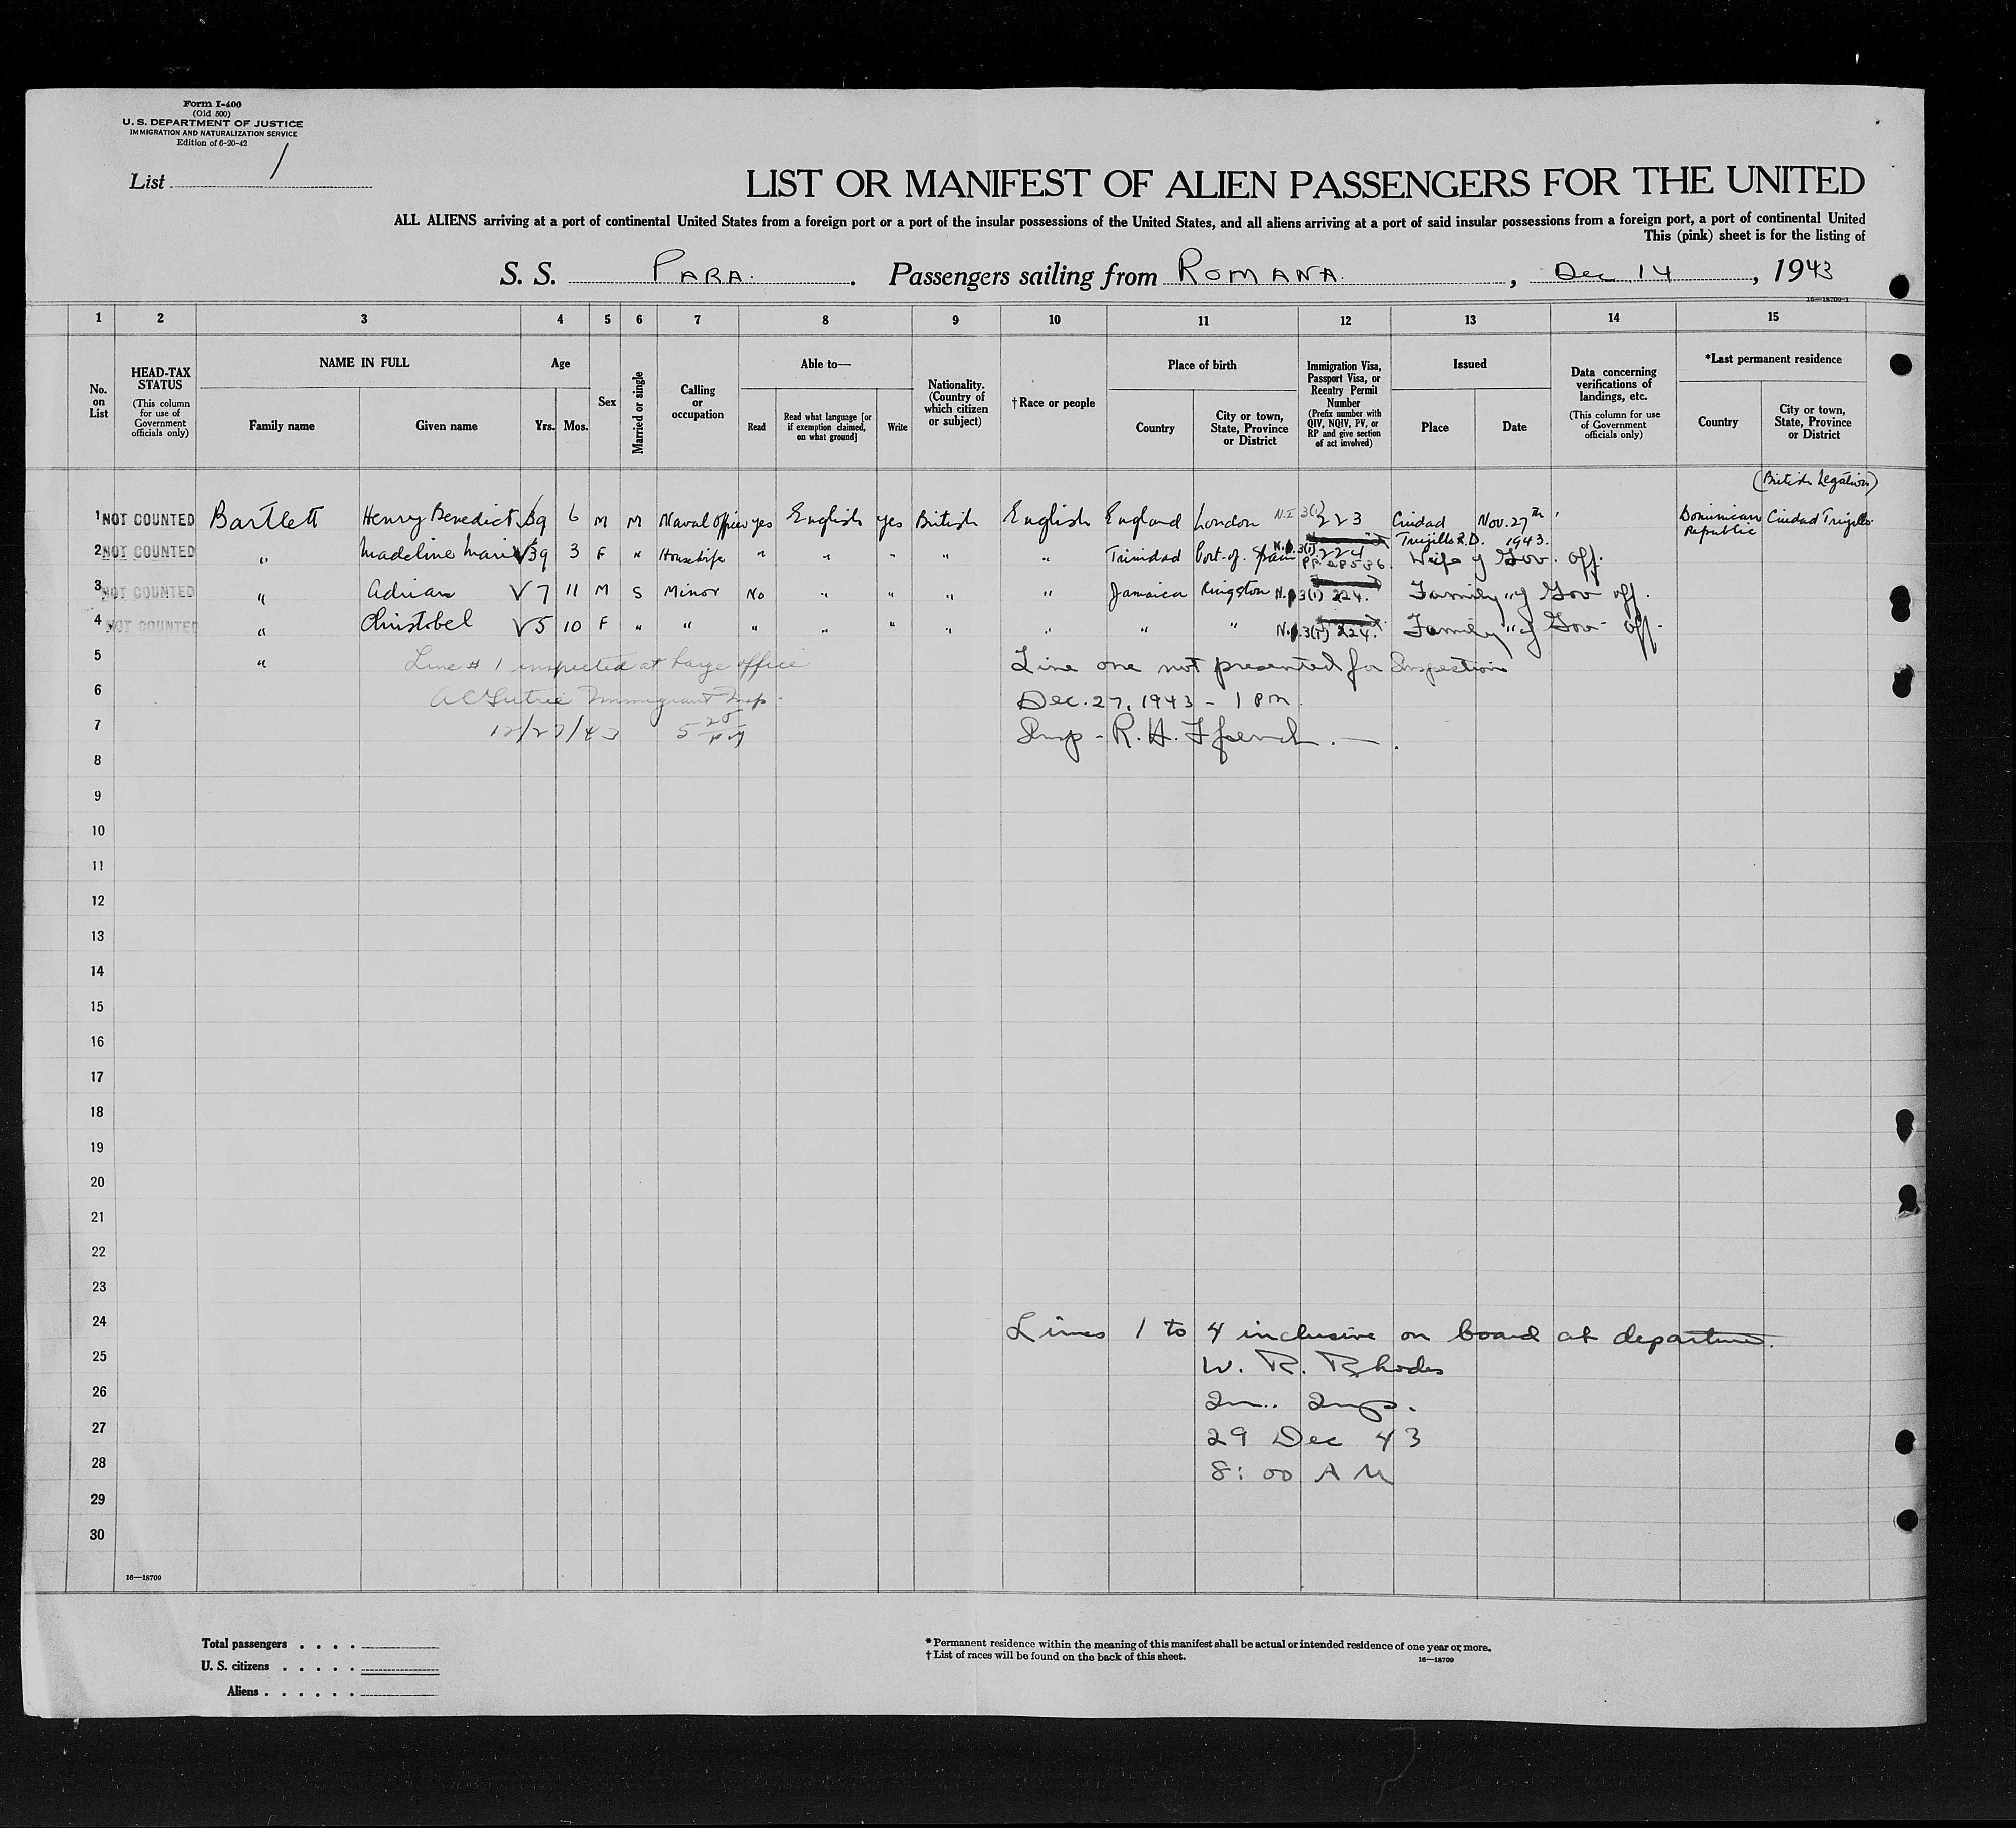 Form I-400
(Old 500)
U. S. DEPARTMENT OF JUSTICE
IMMIGRATION AND NATURALIZATION SERVICE
Edition of 6-20-42
List 1
LIST OR MANIFEST OF ALIEN PASSENGERS FOR THE UNITED
ALL ALIENS arriving at a port of continental United States from a foreign port or a port of the insular possessions of the United States, and all aliens arriving at a port of said insular possessions from a foreign port, a port of continental United
This (pink) sheet is for the listing of
S. S. PARA. Passengers sailing from ROMANA, Dec 14, 1943
16—18709-1
1 2 3 4 5 6 7 8 9 10 11 12 13 14 15
No. on List
HEAD-TAX STATUS
(This column for use of Government officials only)
NAME IN FULL
Family name Given name
Age
Yrs. Mos.
Sex
Married or single
Calling or occupation
Able to—
Read
Read what language [or if exemption claimed, on what ground]
Write
Nationality. (Country of which citizen or subject)
†Race or people
Place of birth
Country
City or town, State, Province or District
Immigration Visa, Passport Visa, or Reentry Permit Number
(Prefix number with QIV, NQIV, PV, or RP and give section of act involved)
Issued
Place Date
Data concerning verifications of landings, etc.
(This column for use of Government officials only)
*Last permanent residence
Country
City or town, State, Province or District
(British Legation)
1 NOT COUNTED Bartlett Henry Benedict 39 6 M M Naval Officer yes English yes British English England London N.I 3(1) 223 Ciudad Trujillo R.D. Nov. 27th 1943. Dominican Republic Ciudad Trujillo
2 NOT COUNTED " Madeline Marie √39 3 F " Housewife " " " " " Trinidad Port-of-Spain 3(1) 224 PP. 28536. Wife of Gov. off.
3 NOT COUNTED " Adrian √7 11 M S Minor No " " " " Jamaica Kingston 3(1) 224. Family of Gov off.
4 NOT COUNTED " Christobel √5 10 F " " " " " " " " " 3(1) 224. Family of Gov off.
5 " Line # 1 inspected at barge office Line one not presented for Inspection
6 Immigrant Insp. Dec. 27, 1943 - 1 PM.
7 12/27/43 5 25 PM Insp - R. H. Ffrench.
8
9
10
11
12
13
14
15
16
17
18
19
20
21
22
23
24 Lines 1 to 4 inclusive on board at departure.
25 W. R. Rhodes
26 Im. Insp.
27 29 Dec 43
28 8:00 AM
29
30
16—18709
Total passengers . . . .
U. S. citizens . . . . .
Aliens . . . . . .
* Permanent residence within the meaning of this manifest shall be actual or intended residence of one year or more.
† List of races will be found on the back of this sheet.
16—18709